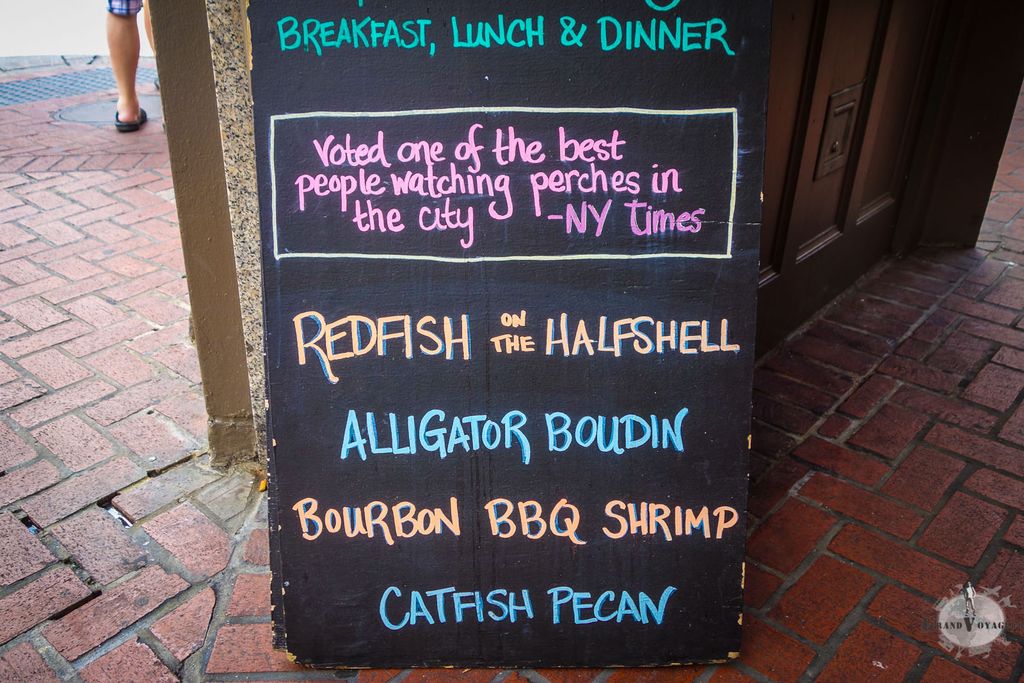 BREAKFAST, LUNCH & DINNER
Voted one of the best
people watching perches in
the city -NY Times
REDFISH ON THE HALFSHELL
ALLIGATOR BOUDIN
BOURBON BBQ SHRIMP
CATFISH PECAN